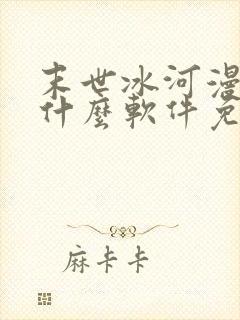 末世冰河漫
什麼軟件免
麻卡卡